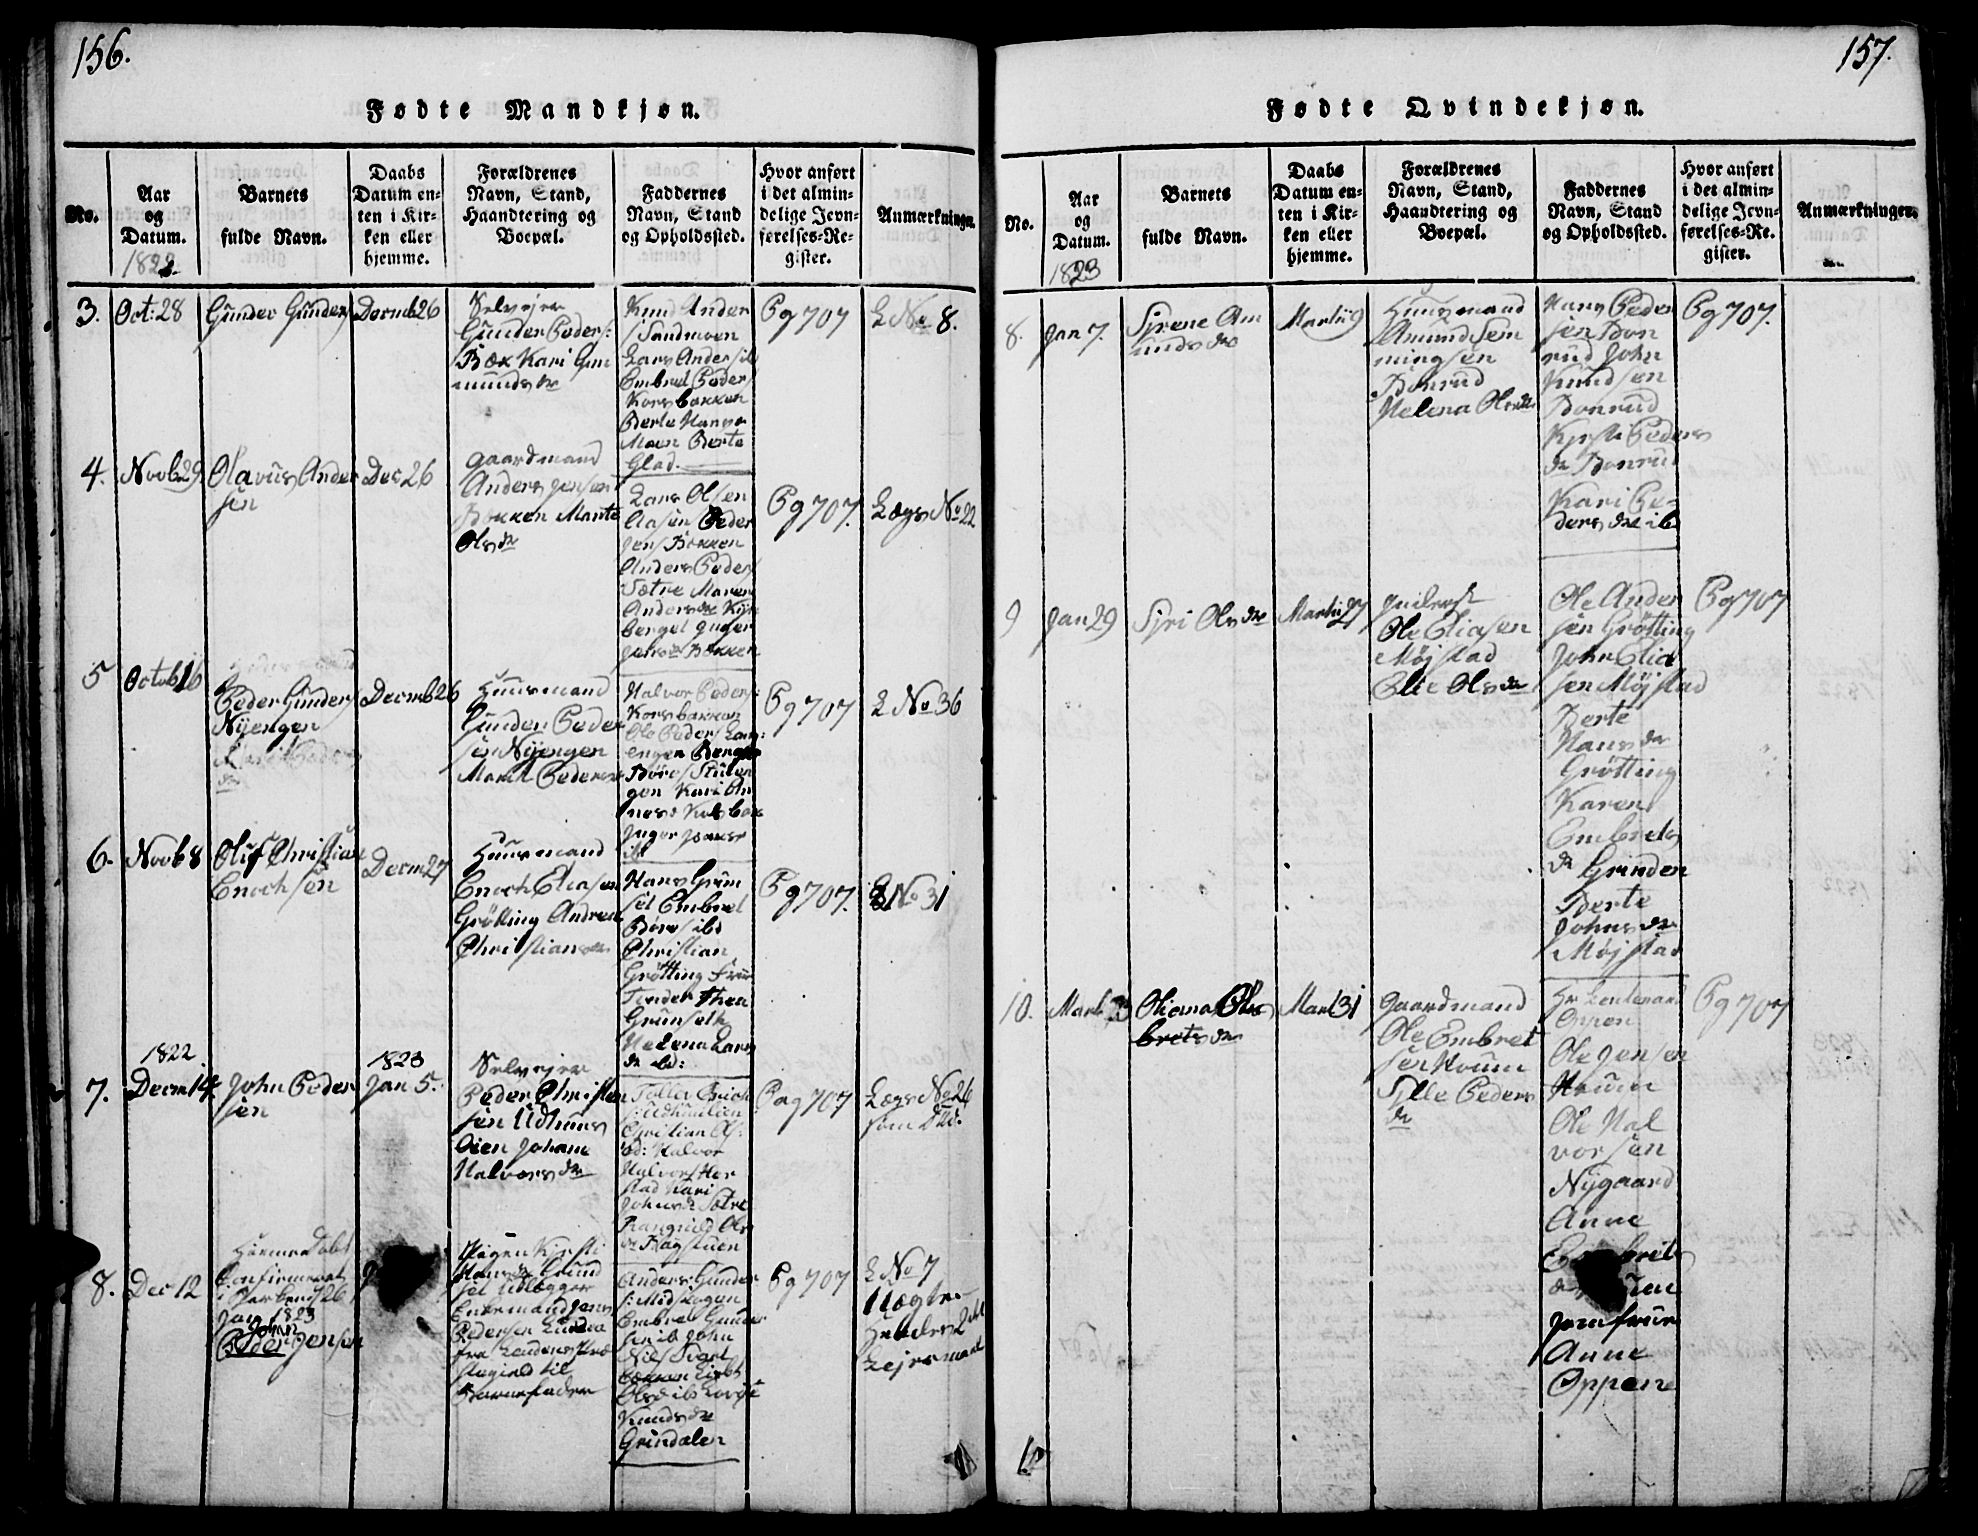 156.
Fødte Mandkjøn.
No.
Aar
og
Datum.
1822.
Barnets
fulde Navn.
Daabs
Datum en-
ten i Kir-
ken eller
hjemme.
Forældrenes
Navn, Stand,
Haandtering og
Boepæl.
Faddernes
Navn, Stand
og Opholdssted.
Hvor anført
i det almin-
delige Jevn-
førelses-Re-
gister.
Anmærkninger.
3.
Oct: 28
Gunder Gunders
Decmb 26
Selvejer
Gunder Peders:
Bæk Kari Gun
munds dr
Knud Ander
s Sandmoen
Lars Anders ib
Embret Peders
Korsbakken
Berte Hans
Moen Berte
Glad.
Pg 707
L No 8.
4.
Novb 29.
Olavus Ander
sen
Dec 26
Gaardmand
Anders Jensen
Bækken Marte
Ols dr
Lars Olsen
Aasen Peder
Jens Bækken
Anders Peders
Sætre Maren
Anders dr Kjn
berget Inger
Jens dr Bækken
Pg 707.
Lægs No 22
5
Octob 16
Peder Gunders
Nÿengen
Decmb 26
Huusmand
Gunder Peder
sen Nÿengen
Marit Peders dr
Halvor Peders:
Korsbakken
Ole Peders Lan:
engen
Børes Stulen
gen Kari
Inger
ib
Pg 707
L No 36
6.
Novb 8
Oluf Christian
Enochsen
Decm 27
Huusmand
Enoch Eliasen
Grøtting Andrea
Christians dr
Hans Grün
set Embret
Børes ibd
Christian
Grøtting Frue
Tinder Thea
Grünseth
Helena Lars
dr ibd:
Pg 707.
No 31
7.
1822
Decm 14
John Peder
sen
1823
Jan 5.
Selvejer
Peder Christen
sen Udhuus
Oien Johane
Halvors dr
Christian Ols:
Halvor
Halvors Her
stad Kari
Johns dr Sætre
Rangnild Ols
dr Bagstuen
Pag 707
Lægs No 26
som Død.
8.
Dec 12
Hjemme Døbt
Confirmeret
26
Jan 1823
John
Peder Jensen
Pigen Kjersti
Hans dr Grund
set Udlægger
Enkemand Jens
Pedersen
fra
stegield til
Barnefader
Anders Gunder
s: Midskogen
Embret Gunder
sen ib John
Nils Svart
bækken
Ols dr ib
Knuds dr
Grindalen
Pg 707
L No 7
Uægte.
Hendes 2det
Lejermaal
157.
Fødte Qvindekjøn.
No.
Aar
og
Datum.
1823
Barnets
fulde Navn.
Daabs
Datum en-
ten i Kir-
ken eller
hjemme.
Forældrenes
Navn, Stand,
Haandtering og
Boepæl.
Faddernes
Navn, Stand
og Opholdssted.
Hvor anført
i det almin-
delige Jevn-
førelses-Re-
gister.
Anmærkninger.
8.
Jan 7.
Sjrene Am
unds dr
Martii 9
Huusmand
Amund Sem
mingsen
Bonrud
Helena Ols dr
Hans Peder
sen Bon
rud John
Knudsen
Bonrud
Kjrsti Peders
dr Bonrud
Kari Pe-
ders dr ib
Pg 707.
9
Jan 29
Sjri Ols dr
Martii 27
Inderst
Ole Eliasen
Møjstad
Elie Ols dr
Ole Ander
sen Grøtting
John Elia
sen Møjstad
Berte
Hans dr
Grøtting
Karen
Embrets
dr Grinden
Berte
Johns dr
Møjstad
Pg 707
10.
Mart 3
Oliana Ols
brets dr
Mart 31
Gaardmand
Ole Embret
sen Houm
Sjlle Peders
dr
Hr Leutenand
Oppen
Ole Jensen
Houm
Ole Hal
vorsen
Nÿgaard
Anne
Embrets
dr
Jomfrue
Anne
Oppen
Pg 707